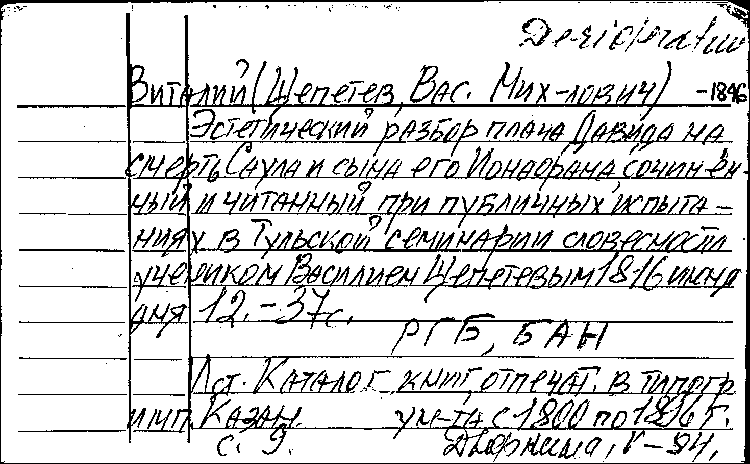 Desiderat
Виталий (Щепетев, Вас. Мих-лович) -1846
Эстетический разбор плача Давида на
смерть Саула и сына его Ионафана, сочинён-
ный и читанный при публичных испыта-
ниях в Тульской семинарии словесности
учеником Василием Щепетевым 1816 июня
дня 12. - 37 с.
РГБ, БАН
Ист. Каталог книг, отпечат. в типогр
имп. Казан. ун-та с 1800 по 1896 г.
с. 9. V-94.